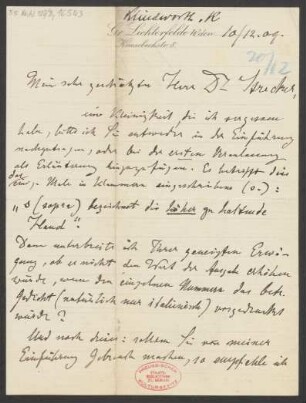 Klindworth, K
Gr. Lichterfelde
10/12.09.
20/12
Mein sehr geehrter Herr Dr Strecker,
eine Kleinigkeit die ich vergessen
habe, bitte ich Sie entweder in der Einführung
nachzutragen, oder bei der ersten
als Erläuterung hinzuzufügen. Es betrifft die
Male in Klammern eingeschriebene (s.):
"s (sopra) bezeichnet die höher zu haltende
Hand".
Dann unterbreite ich Ihrer geneigten Erwä-
gung, ob es nicht den Wert der Ausgabe erhöhen
würde, wenn den einzelnen Nummern das betr.
Gedicht (natürlich nur italienisch) vorgedruckt
würde?
Und noch dieses: sollten Sie von meiner
Einführung Gebrauch machen, so empfehle ich